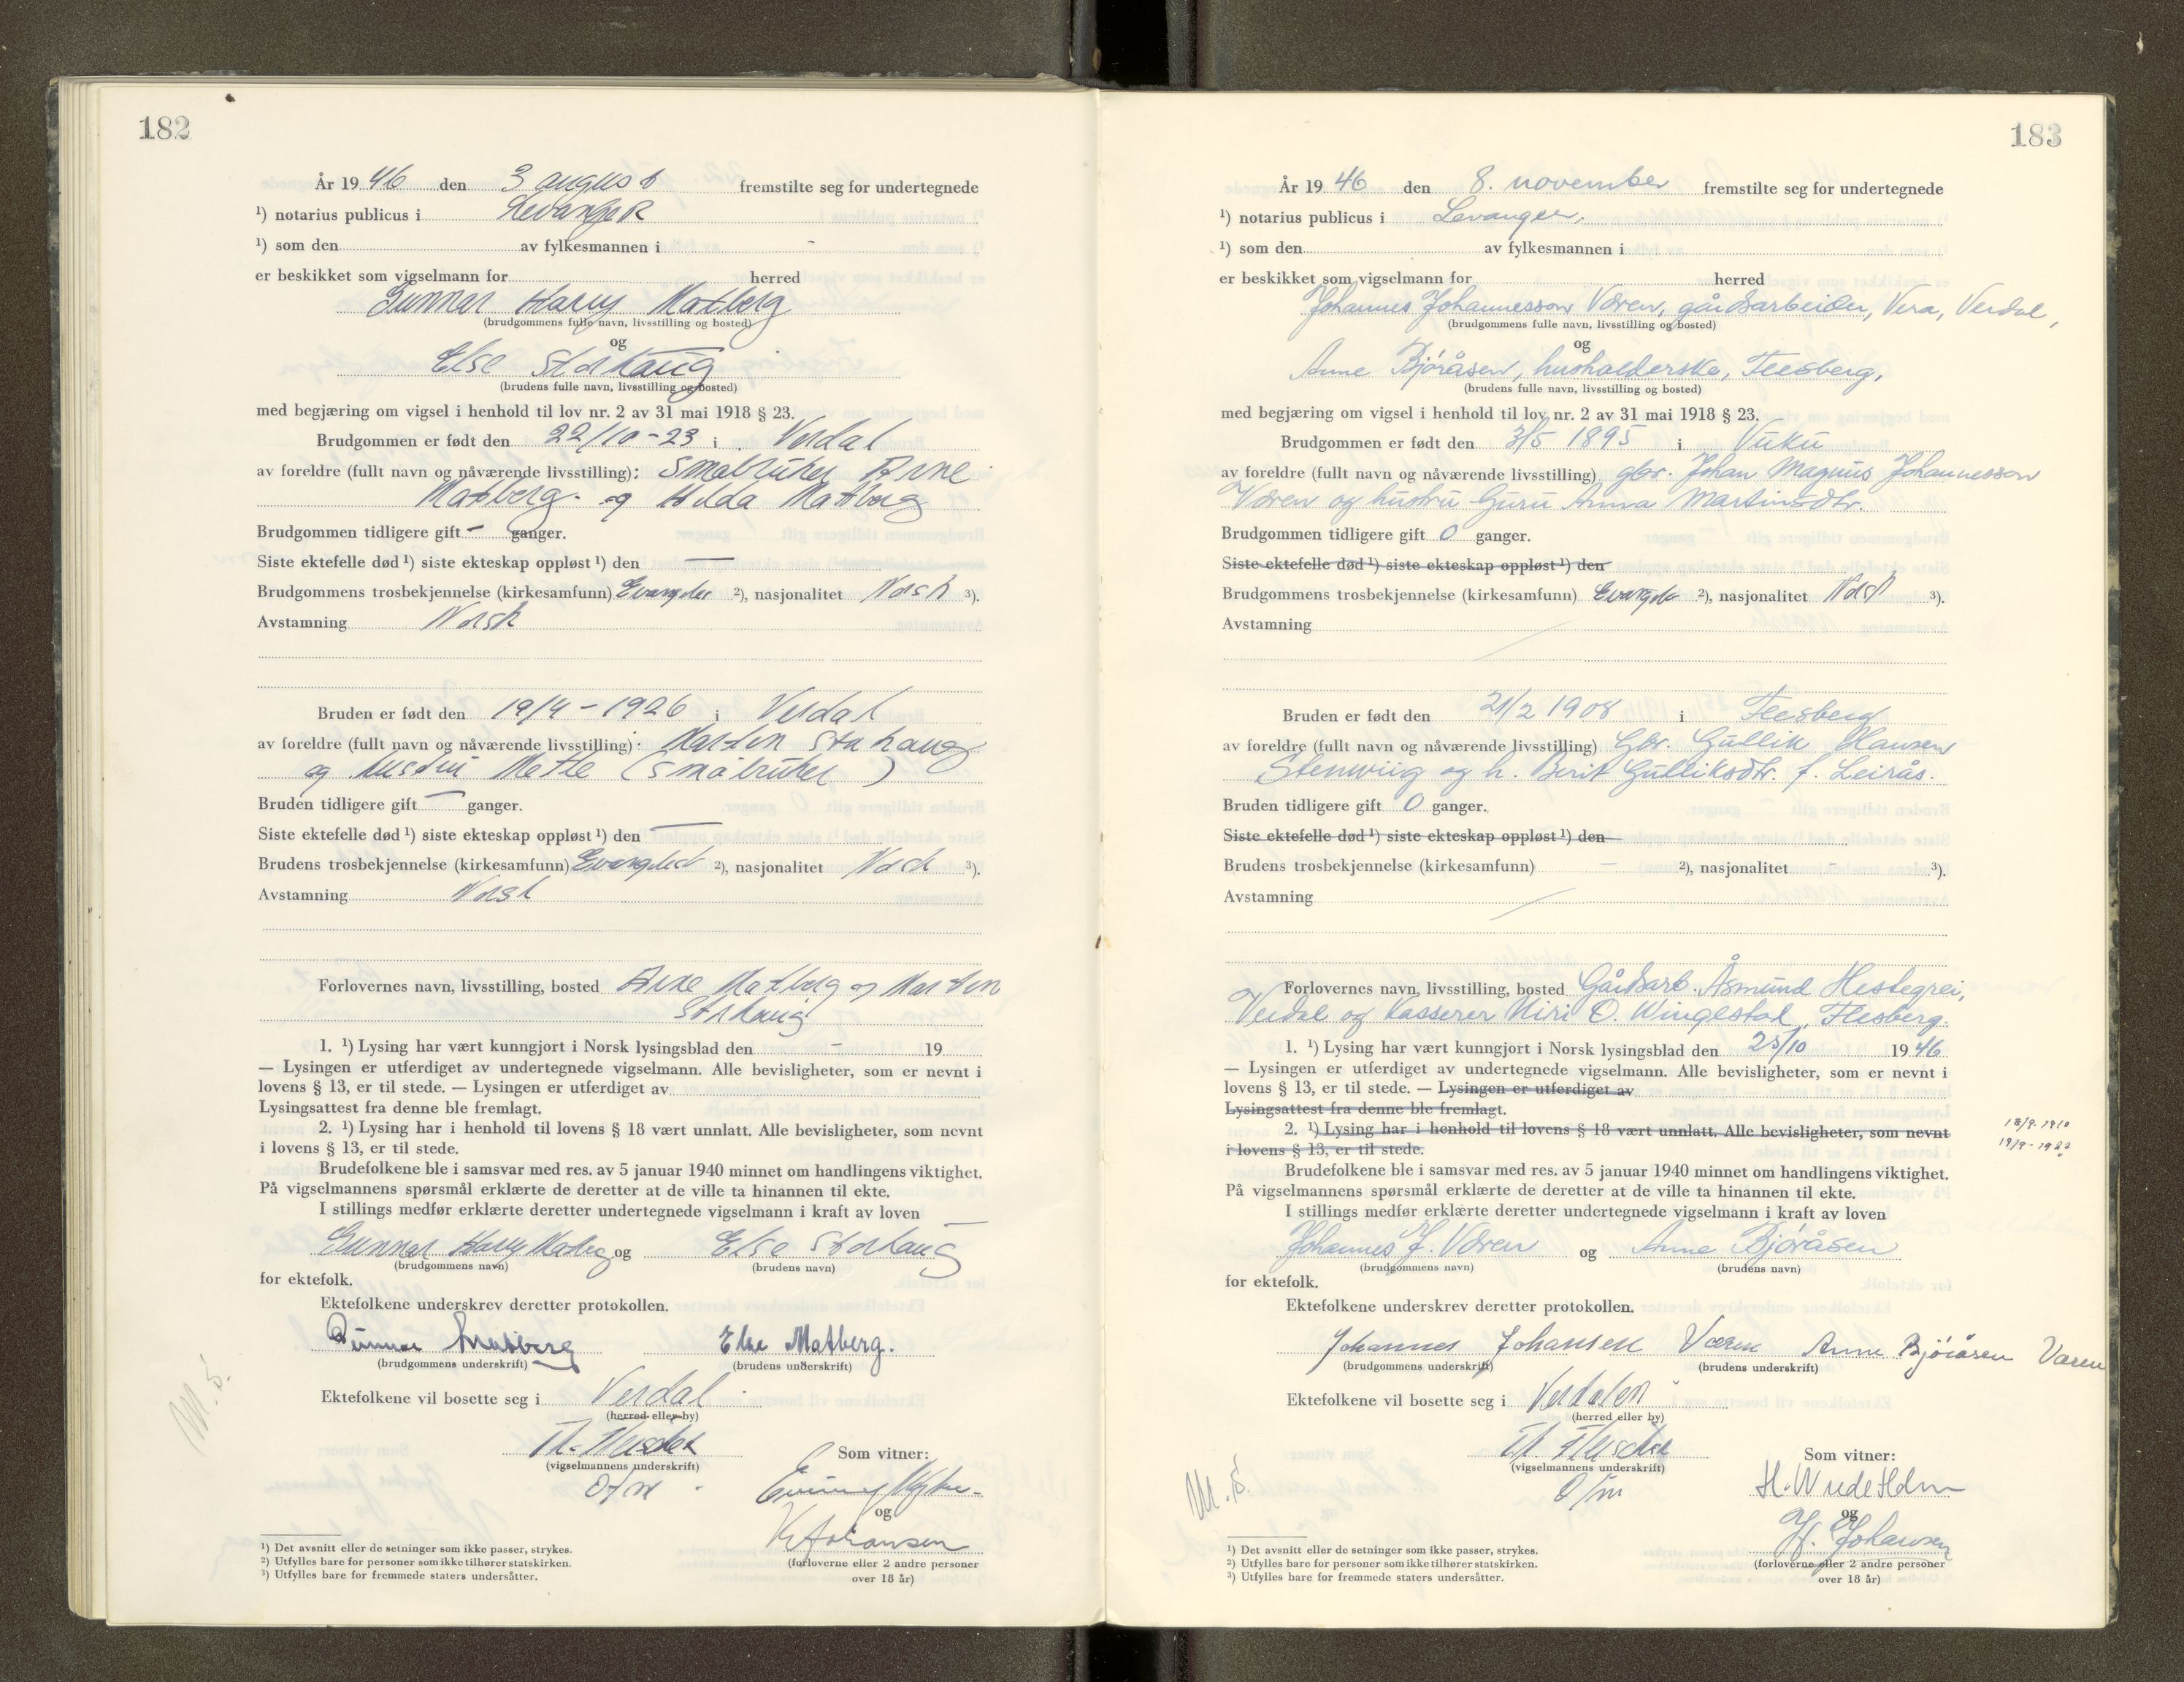 182
År 1946 den 3 august fremstilte seg for undertegnede
¹) notarius publicus i Levanger
¹) som den av fylkesmannen i -
er beskikket som vigselmann for herred
Gunnar Harry Matberg
(brudgommens fulle navn, livsstilling og bosted)
og
Else Storhaug
(brudens fulle navn, livsstilling og bosted)
med begjæring om vigsel i henhold til lov nr. 2 av 31 mai 1918 § 23.
Brudgommen er født den 22/10-23 i Verdal
av foreldre (fullt navn og nåværende livsstilling): småbruker Arne
Matberg og Hilda Matberg
Brudgommen tidligere gift - ganger.
Siste ektefelle død ¹) siste ekteskap oppløst ¹) den —
Brudgommens trosbekjennelse (kirkesamfunn) ²), nasjonalitet Norsk ³).
Avstamning Norsk
Bruden er født den 19/4-1926 i Verdal
av foreldre (fullt navn og nåværende livsstilling): Marten Storhaug
og hustru Metle (småbruker)
Bruden tidligere gift — ganger.
Siste ektefelle død ¹) siste ekteskap oppløst ¹) den —
Brudens trosbekjennelse (kirkesamfunn) ²), nasjonalitet Norsk ³).
Avstamning Norsk
Forlovernes navn, livsstilling, bosted Arne Matberg og Marten
Storhaug
1. ¹) Lysing har vært kunngjort i Norsk lysingsblad den - 19
— Lysingen er utferdiget av undertegnede vigselmann. Alle bevisligheter, som er nevnt i
lovens § 13, er til stede. — Lysingen er utferdiget av
Lysingsattest fra denne ble fremlagt.
2. ¹) Lysing har i henhold til lovens § 18 vært unnlatt. Alle bevisligheter, som nevnt
i lovens § 13, er til stede.
Brudefolkene ble i samsvar med res. av 5 januar 1940 minnet om handlingens viktighet.
På vigselmannens spørsmål erklærte de deretter at de ville ta hinannen til ekte.
I stillings medfør erklærte deretter undertegnede vigselmann i kraft av loven
Gunnar Harry Matberg og Else Storhaug
(brudgommens navn) (brudens navn)
for ektefolk.
Ektefolkene underskrev deretter protokollen.
Gunnar Matberg Else Matberg.
(brudgommens underskrift) (brudens underskrift)
Ektefolkene vil bosette seg i Verdal
(herred eller by)
Som vitner:
(vigselmannens underskrift)
og
Johansen
(forloverne eller 2 andre personer
over 18 år)
¹) Det avsnitt eller de setninger som ikke passer, strykes.
²) Utfylles bare for personer som ikke tilhører statskirken.
³) Utfylles bare for fremmede staters undersåtter.
183
År 1946 den 8. november fremstilte seg for undertegnede
¹) notarius publicus i Levanger.
¹) som den av fylkesmannen i
er beskikket som vigselmann for herred
Johannes Johannesson Væren, gårdsarbeider, Vera, Verdal,
(brudgommens fulle navn, livsstilling og bosted)
og
Anne Bjøråsen, husholderske, Flesberg,
(brudens fulle navn, livsstilling og bosted)
med begjæring om vigsel i henhold til lov nr. 2 av 31 mai 1918 § 23.
Brudgommen er født den 3/5 1895 i Vuku
av foreldre (fullt navn og nåværende livsstilling) gbr. Johan Magnus Johannesson
Væren og hustru Guru Anna Martinsdtr.
Brudgommen tidligere gift 0 ganger.
Siste ektefelle død ¹) siste ekteskap oppløst ¹) den
Brudgommens trosbekjennelse (kirkesamfunn) ²), nasjonalitet Norsk ³).
Avstamning
Bruden er født den 21/2 1908 i Flesberg
av foreldre (fullt navn og nåværende livsstilling) Gbr. Gullik Hansen
Stenwiig og h. Berit Gulliksdtr. f. Leirås.
Bruden tidligere gift 0 ganger.
Siste ektefelle død ¹) siste ekteskap oppløst ¹) den
Brudens trosbekjennelse (kirkesamfunn) - ²), nasjonalitet - ³).
Avstamning
Forlovernes navn, livsstilling, bosted Gårdsarb. Åsmund Hestegrei,
Verdal og Kasserer O. Wingestad, Flesberg.
1. ¹) Lysing har vært kunngjort i Norsk lysingsblad den 25/10 1946
— Lysingen er utferdiget av undertegnede vigselmann. Alle bevisligheter, som er nevnt i
lovens § 13, er til stede. — Lysingen er utferdiget av
Lysingsattest fra denne ble fremlagt.
2. ¹) Lysing har i henhold til lovens § 18 vært unnlatt. Alle bevisligheter, som nevnt
i lovens § 13, er til stede.
Brudefolkene ble i samsvar med res. av 5 januar 1940 minnet om handlingens viktighet.
På vigselmannens spørsmål erklærte de deretter at de ville ta hinannen til ekte.
I stillings medfør erklærte deretter undertegnede vigselmann i kraft av loven
Johannes J. Væren og Anne Bjøråsen
(brudgommens navn) (brudens navn)
for ektefolk.
Ektefolkene underskrev deretter protokollen.
Johannes Johansen Væren Anne Bjøråsen Væren
(brudgommens underskrift) (brudens underskrift)
Ektefolkene vil bosette seg i Verdalen
(herred eller by)
Som vitner:
(vigselmannens underskrift)
og
Johansen
(forloverne eller 2 andre personer
over 18 år)
¹) Det avsnitt eller de setninger som ikke passer, strykes.
²) Utfylles bare for personer som ikke tilhører statskirken.
³) Utfylles bare for fremmede staters undersåtter.